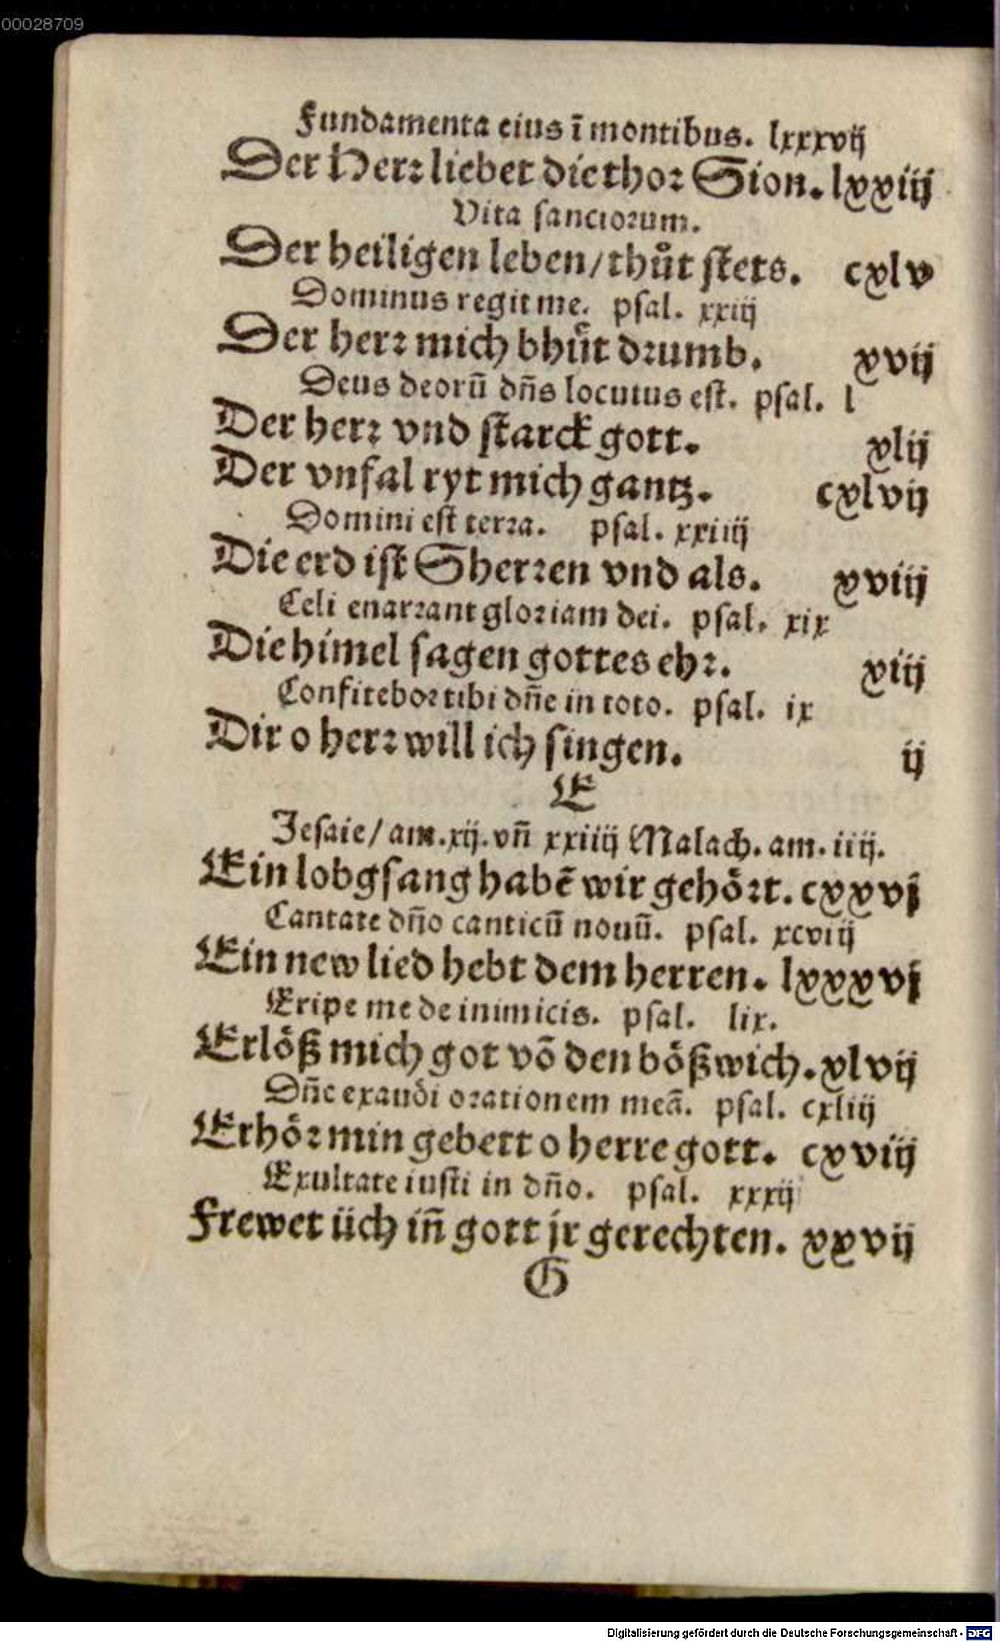 00028709
Fundamenta eius ī montibus. lxxxvij
Der Herr liebet die thor Sion. lxxiij
Vita sanctorum.
Der heiligen leben/thuͦt stets. cxlv
Dominus regit me. psal. xxiij
Der herr mich bhuͤt drumb. xvij
Deus deorū dn̄s locutus est. psal. l
Der herr vnd starck gott. xlij
Der vnfal ryt mich gantz. cxlvij
Domini est terra. psal. xxiiij
Die erd ist Sherren vnd als. xviij
Celi enarrant gloriam dei. psal. xix
Die himel sagen gottes ehr. xiij
Confitebor tibi dn̄e in toto. psal. ix
Dir o herr will ich singen. ij
E
Jesaie/am.xij.vn̄ xxiiij Malach. am. iiij.
Ein lobgsang habē wir gehoͤrt. cxxvj
Cantate dn̄o canticū nouū. psal. xcviij
Ein new lied hebt dem herren. lxxxvj
Eripe me de inimicis. psal. lix.
Erloͤß mich got vō den boͤßwich. xlvij
Dn̄e exaudi orationem meā. psal. cxliij
Erhoͤr min gebett o herre gott. cxviij
Exultate iusti in dn̄o. psal. xxxij
Frewet üch in̄ gott jr gerechten. xxvij
G
Digitalisierung gefördert durch die Deutsche Forschungsgemeinschaft - DFG